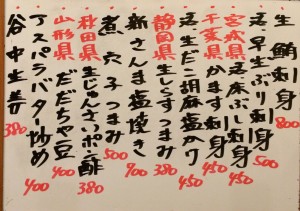 生鮪刺身 800
活早生ぶり刺身 500
宮城県 活〆ぶし刺身 450
千葉県 かます刺身 450
活生だこ胡麻塩かり 450
静岡県 生しらすつまみ 380
新さんま塩焼き 900
煮穴子つまみ 500
秋田県 生じゅんさいポン酢 380
山形県 だだちゃ豆 400
アスパラバター炒め 400
谷中生姜 380